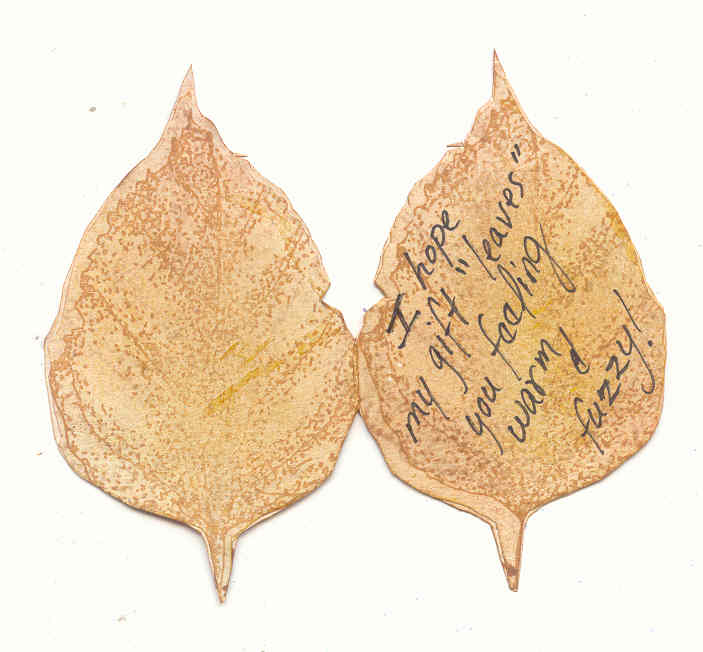 I hope
my gift "leaves"
you feeling
warm &
fuzzy!